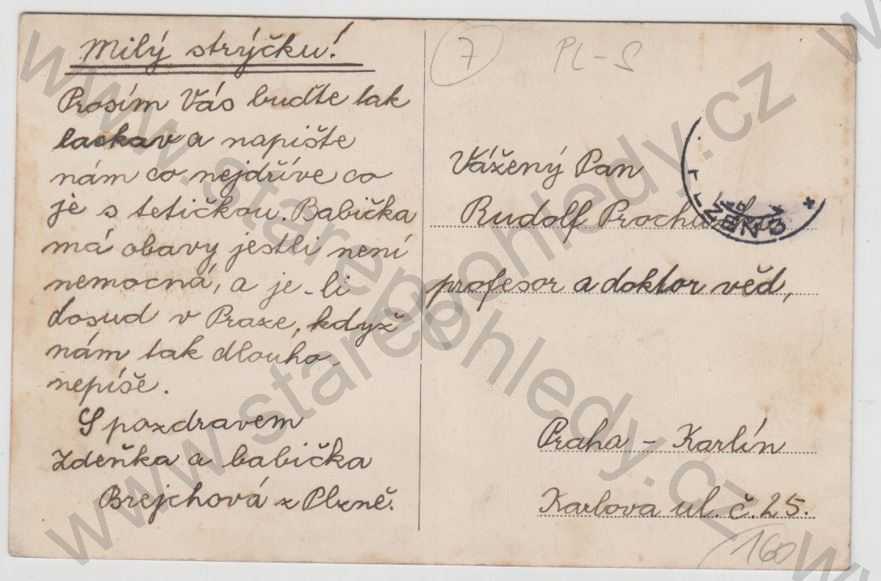 Milý strýčku!
Prosím Vás buďte tak
laskav a napište
nám co nejdříve co
je s tetičkou. Babička
má obavy jestli není
nemocná, a je-li
dosud v Praze, když
nám tak dlouho
nepíše.
S pozdravem
Zdeňka a babička
Brejchová z Plzně.
7
PL-S
Vážený Pan
Rudolf
profesor a doktor věd,
Praha - Karlín
Karlova ul. č. 25.
160
www.starepohledy.cz
www.starepohledy.cz